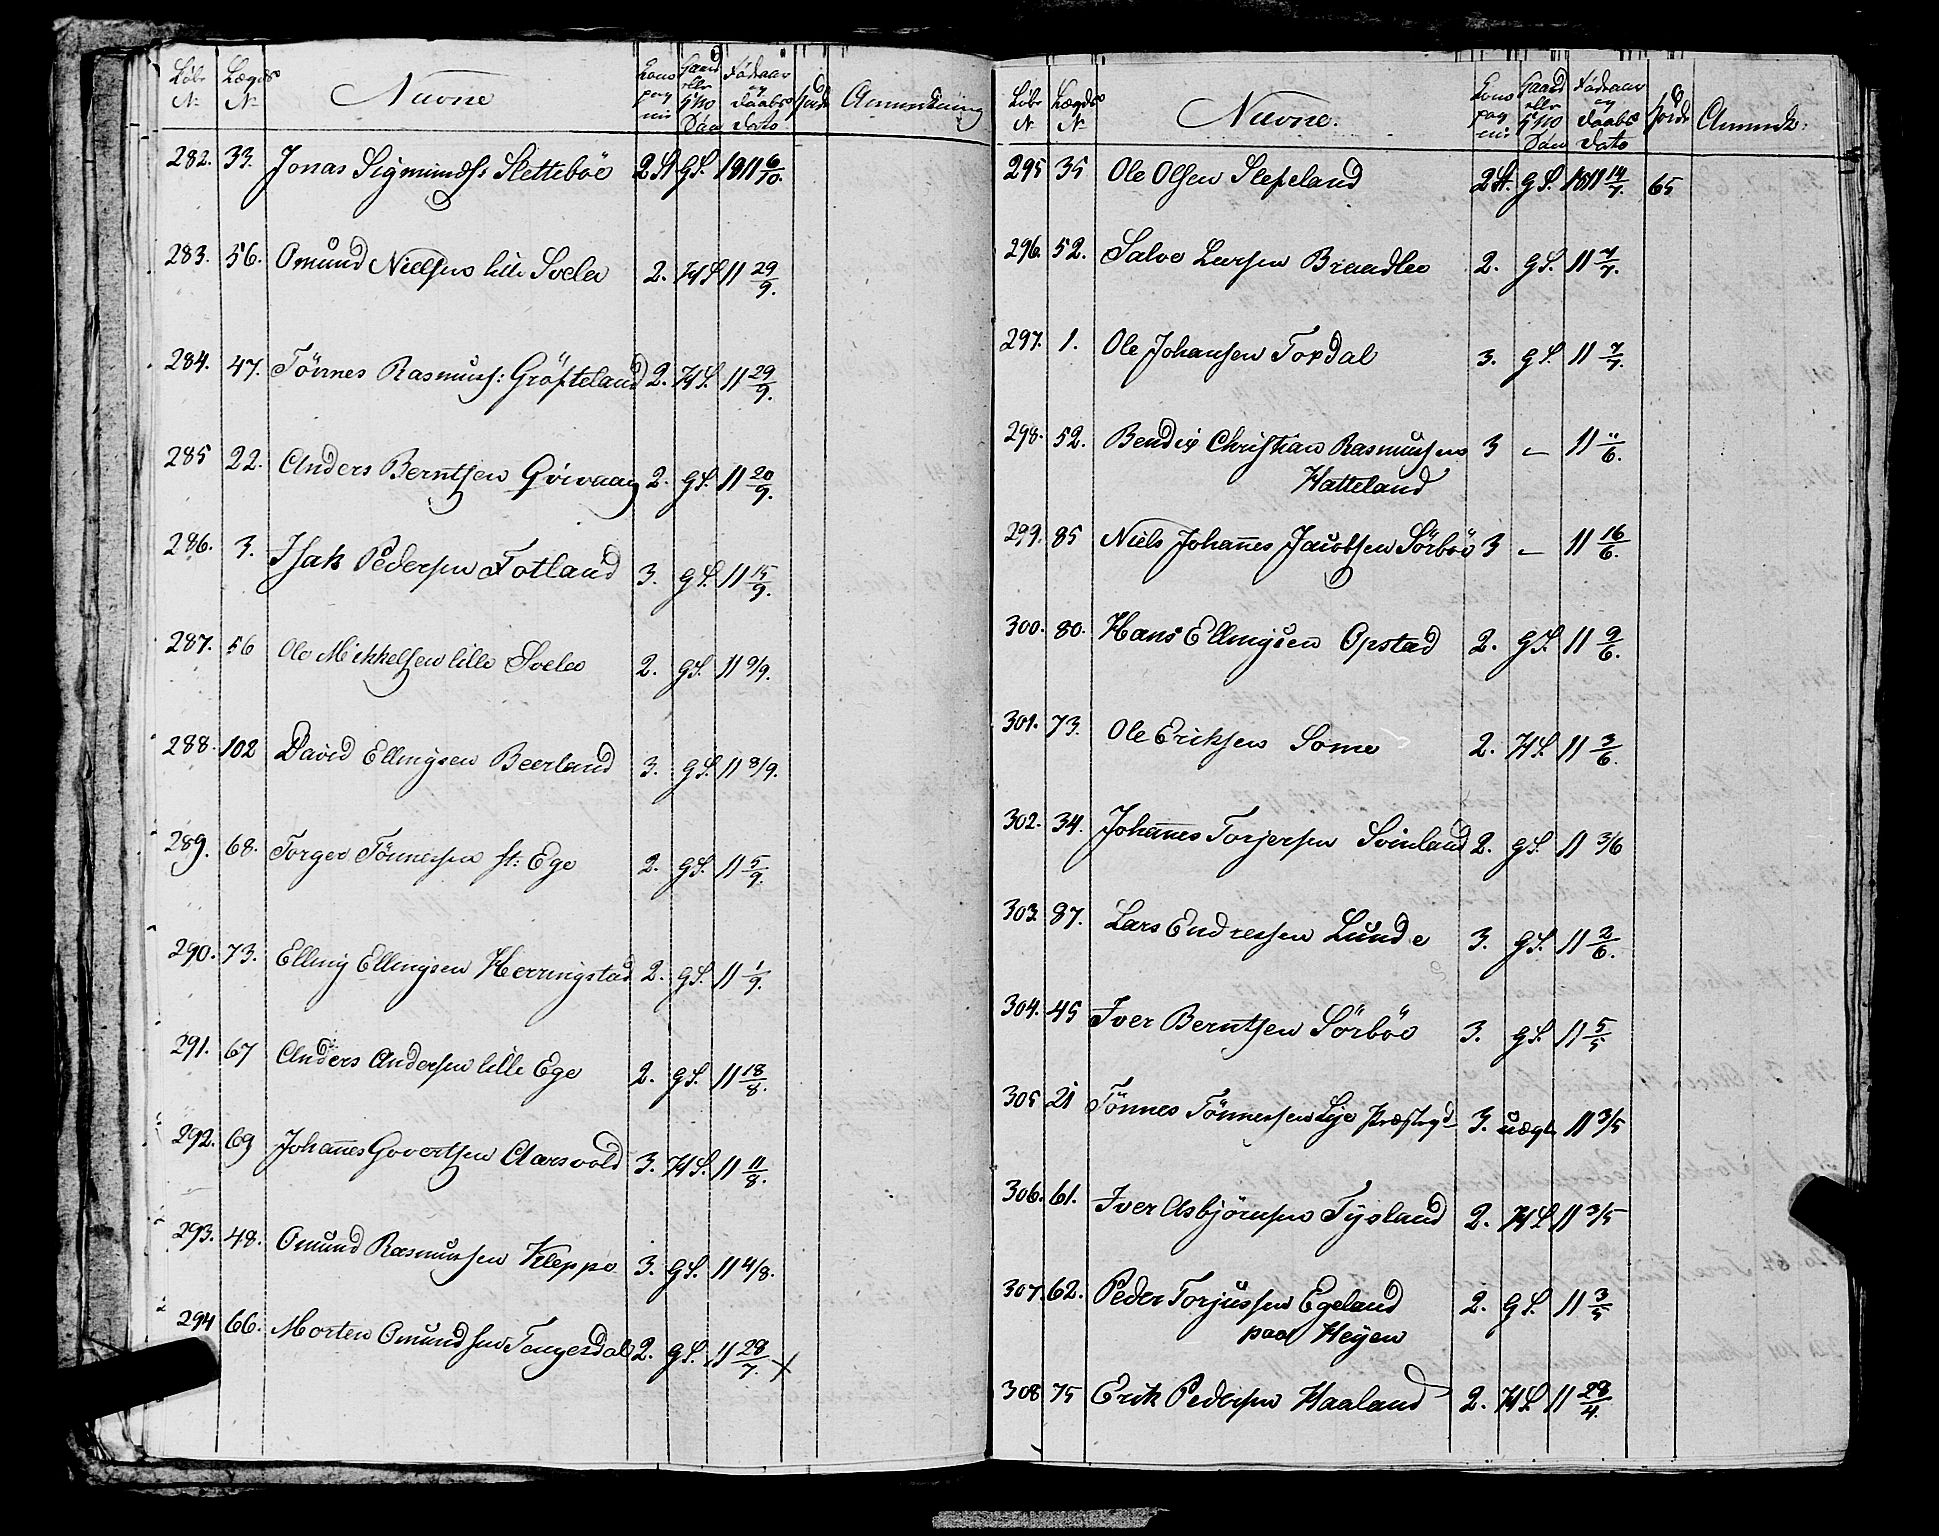 Løbe No Lægds No Navne Compagnie Gaard eller HMd Søn Fødeaar og Daabs Dato Høide Anmærkning
282. 33. Jonas Sigmundss: Sletteböe 2 St GS. 1811 6/10.
283. 56. Omund Nielsen lille Svela 2. HS 11 29/9.
284. 47. Tönnes Rasmuss: Gröfteland 2. HS. 11 29/9.
285 22. Anders Berntsen Qvivaag 2. GS. 11 20/9.
286. 3. Isak Pedersen Totland 3. GS. 11 15/9.
287. 56 Ole Mikkelsen lille Svele 2. GS. 11 9/9.
288. 102 David Ellingsen Beerland 3. GS. 11 8/9.
289. 68. Torger Tönnessen st: Ege 2. GS. 11 5/9.
290. 73. Elling Ellingsen Herringstad 2. GS. 11 1/9.
291. 67 Anders Andersen lille Ege 2. GS. 11 18/8.
292. 69 Johannes Govertsen Aarsvold 3. HS. 11 11/8.
293. 48. Omund Rasmussen Kleppe 3. GS. 11 4/8.
294 66. Morten Omundsen Tengesdal 2. GS. 11 28/7. X
Løbe No Lægds No Navne. Compagnie Gaard eller Søn Fødeaar og Daabs Dato Høide Anmærk:
295 35 Ole Olsen Slepeland 2 St. GS. 1811 14/7. 65
296. 52. Salve Larsen Braadlie 2. GS. 11 7/7.
297. 1. Ole Johansen Topdal 3. GS. 11 7/7.
298. 52. Bendix Christian Rasmussen 3 — 11 "/6.
Hatteland
299. 85 Niels Johannes Jacobsen Sörböe 3 — 11 16/6.
300. 80. Hans Ellingsen Opstad 2. GS. 11 9/6.
301. 73. Ole Eriksen Some 2. HS. 11 3/6.
302. 34. Johannes Torjersen Svinland 2. GS. 11 3/6
303. 87. Lars Endressen Lunde 3. GS. 11 2/6.
304. 45 Iver Berntsen Sörböe 3. GS. 11 5/5.
305 21 Tönnes Tönnessen Lye Præstegd 3. uægte 11 3/5
306. 61. Iver Asbjörnsen Tysland 2. HS 11 3/5
307. 62. Peder Torjussen Egeland 2. GS. 11 3/5
paa Heyen
308 75 Erik Pedersen Haaland 2. HS. 11 28/4.